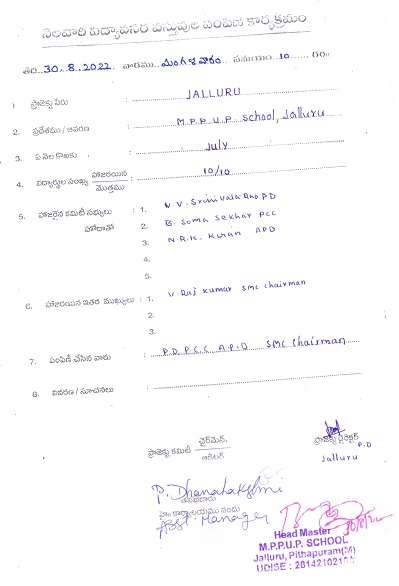 నెలవారి విద్యావసర వస్తువుల పంపిణి కార్యక్రమం
తేది..30.8.2022. వారము..మంగళవారం.. సమయం.10......గం॥
1. ప్రాజెక్టు పేరు : JALLURU
2. ప్రదేశము / ఆవరణ : M.P.P.U.P. School, Jalluru
3. ఏ నెల కొఱకు : July
4. విద్యార్థుల సంఖ్య హాజరయిన / మొత్తము : 10/10
5. హాజరైన కమిటీ సభ్యులు హోదాతో : 1. V.V. Srinivasa Rao PD
2. B. Soma Sekhar PCC
3. N.R.K. Kiran APD
4.
5.
6. హాజరయిన ఇతర ముఖ్యులు : 1. V. Raj Kumar SMC Chairman
2.
3.
7. పంపిణీ చేసిన వారు : P.D, P.C.C A.P.D SMC Chairman
8. వివరణ / సూచనలు :
ప్రాజెక్టు కమిటీ ఛైర్మెన్. / ఆడిటర్
ప్రాజెక్టు డైరెక్టర్
P.D
Jalluru
P. Dhanalakshmi
హెడ్ కార్యాలయము నందు
Asst. Manager
30/8/22
Head Master
M.P.P.U.P. SCHOOL
Jalluru, Pithapuram(M)